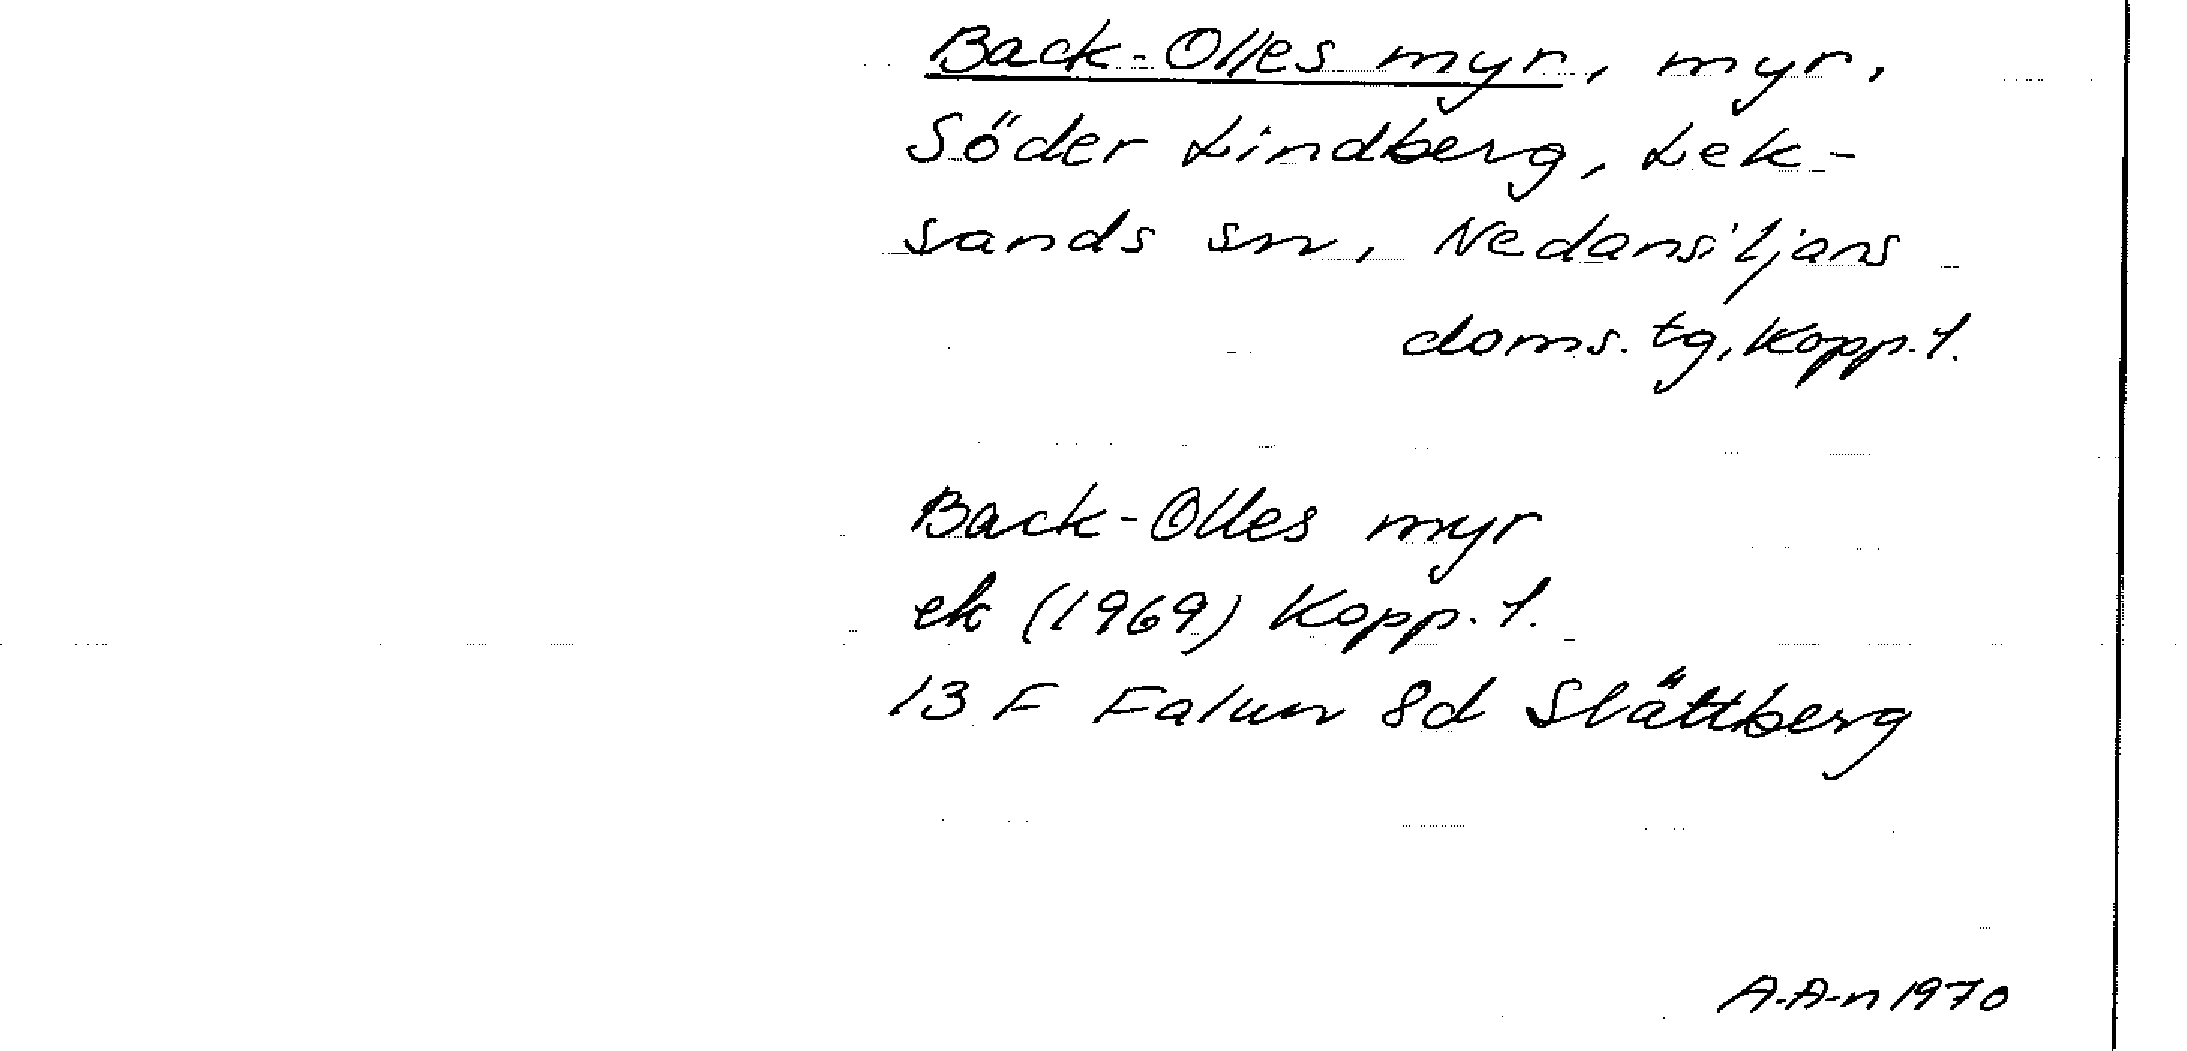 Back-Olles myr, myr,
Söder Lindberg, Lek-
sands sn, Nedansiljans
doms. tg, Kopp. l.
Back-Olles myr
ek (1969) Kopp. l.
13 F Falun 8d Slättberg
A.A-n 1970